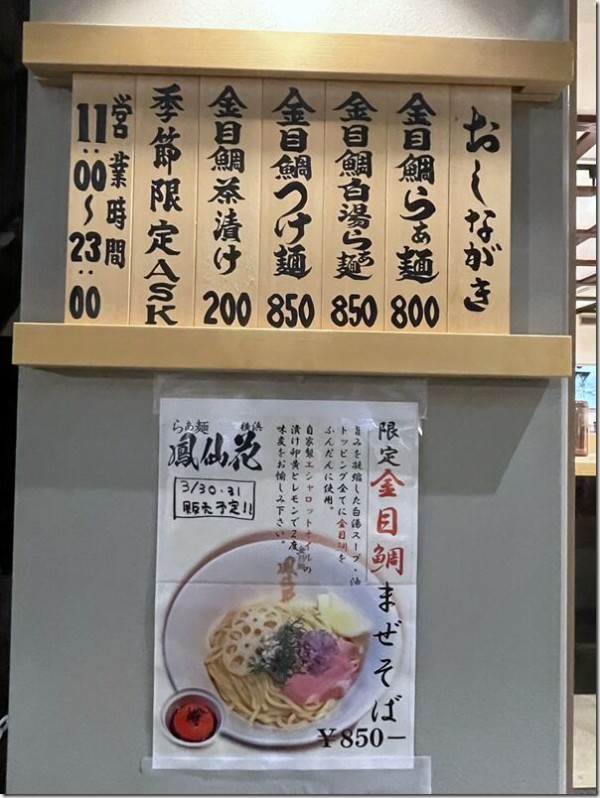 おしながき
金目鯛らぁ麺 800
金目鯛白湯らぁ麺 850
金目鯛つけ麺 850
金目鯛茶漬け 200
季節限定ASK
営業時間
11:00～23:00
限定金目鯛まぜそば
¥850-
旨みを凝縮した白湯スープ・油
トッピング全てに金目鯛を
ふんだんに使用。
自家製エシャロットオイルの
漬け卵黄とレモンで2度
味変をお愉しみ下さい。
らぁ麺 横浜
鳳仙花
3/30.31
販売予定!!